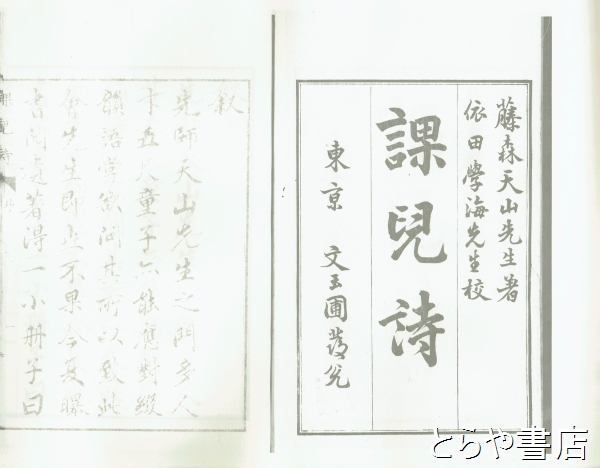 藤森天山先生著
依田學海先生校
課兒詩
東京 文玉圃發兌
叙
先師天山先生之門多人
才五尺童子亦能應對綴
韻語嘗欲問其所以致此
會先生即世不果今夏曝
書閲遺著得一小册子曰
とらや書店